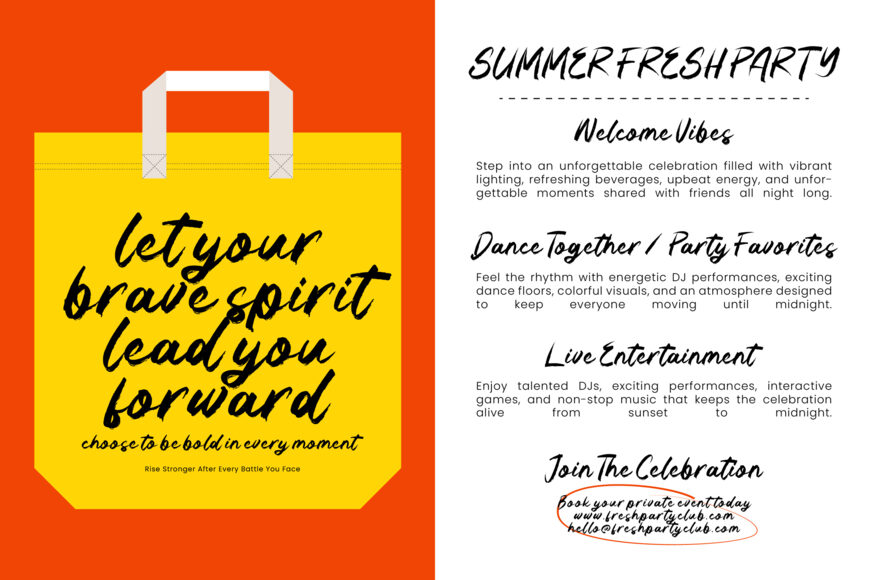 let your
brave spirit
lead you
forward
choose to be bold in every moment
Rise Stronger After Every Battle You Face
SUMMER FRESH PARTY
Welcome Vibes
Step into an unforgettable celebration filled with vibrant
lighting, refreshing beverages, upbeat energy, and unfor-
gettable moments shared with friends all night long.
Dance Together / Party Favorites
Feel the rhythm with energetic DJ performances, exciting
dance floors, colorful visuals, and an atmosphere designed
to keep everyone moving until midnight.
Live Entertainment
Enjoy talented DJs, exciting performances, interactive
games, and non-stop music that keeps the celebration
alive from sunset to midnight.
Join The Celebration
Book your private event today
www.freshpartyclub.com
hello@freshpartyclub.com